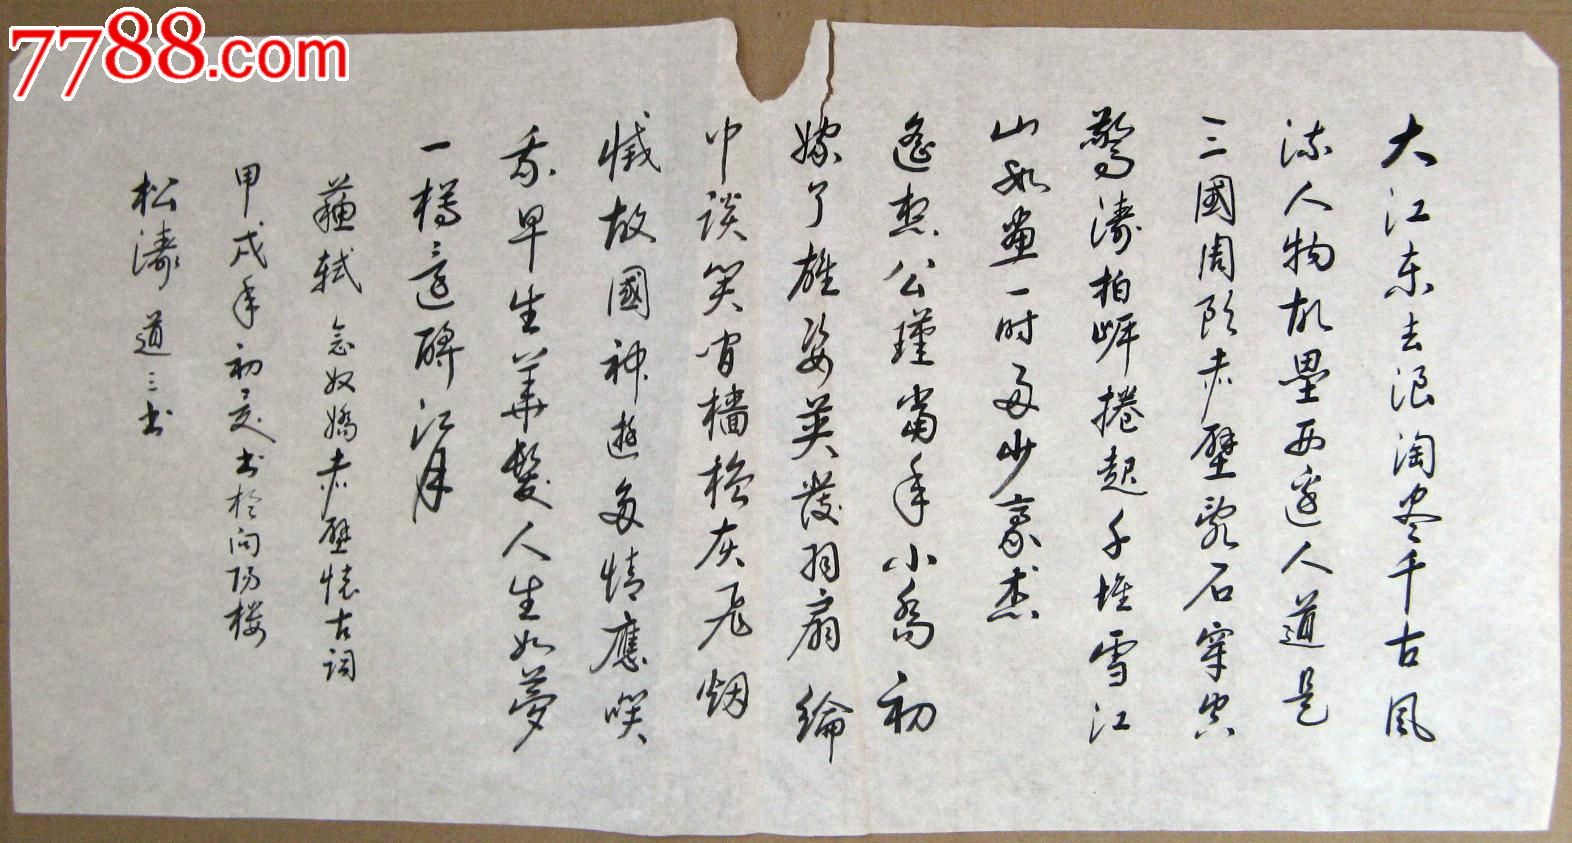 7788.com
大江東去浪淘盡千古風
流人物故壘西邊人道是
三國周郎赤壁亂石穿空
驚濤拍岸捲起千堆雪江
山如畫一時多少豪杰
遙想公瑾當年小喬初
嫁了雄姿英發羽扇綸
巾談笑間檣櫓灰飛烟
滅故國神遊多情應笑
我早生華髮人生如夢
一樽還酹江月
蘇軾念奴嬌赤壁懷古詞
甲戌年初夏書於向阳楼
松濤道三書